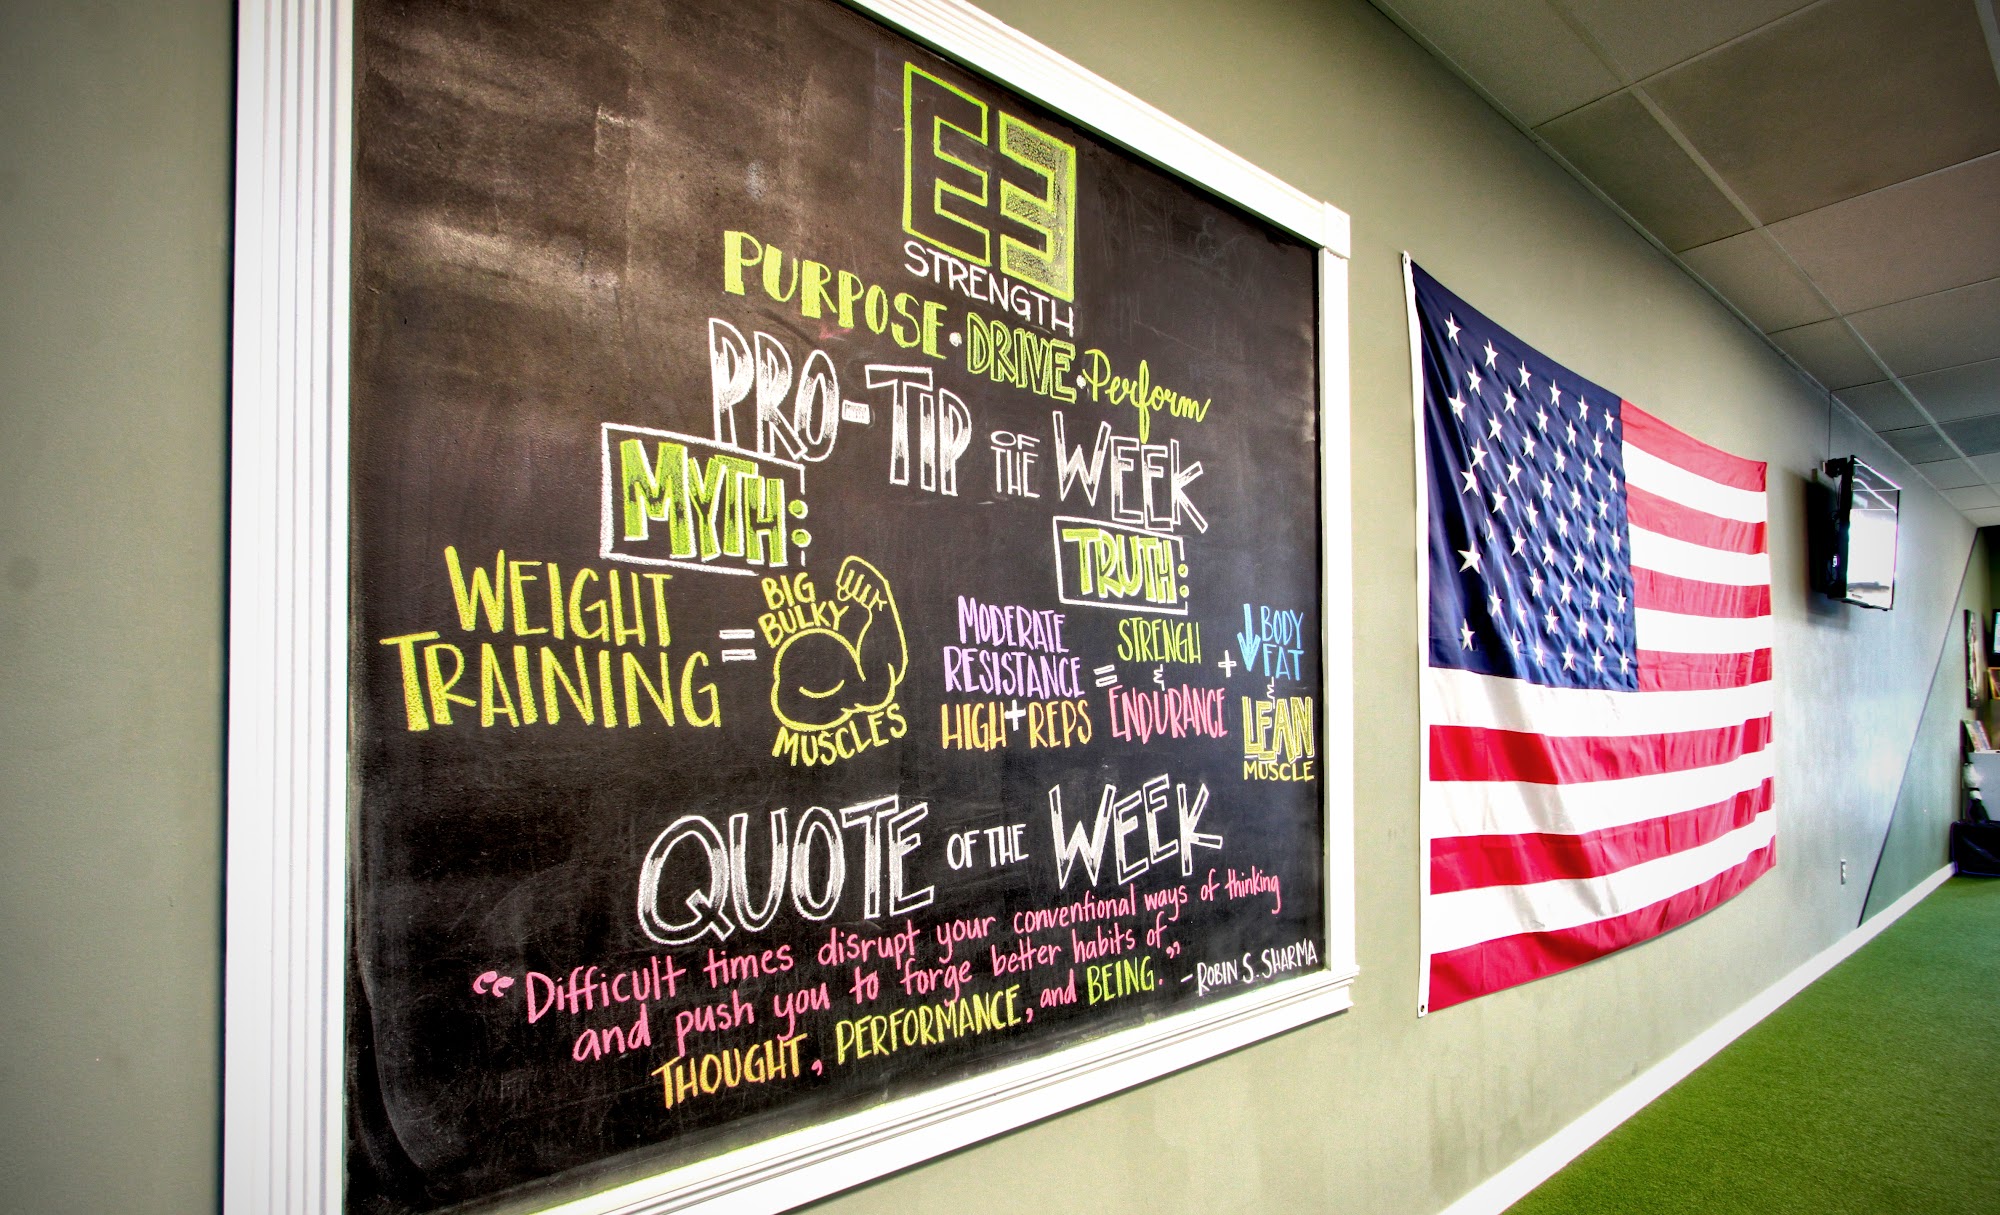 E3
STRENGTH
PURPOSE • DRIVE • Perform
PRO-TIP OF THE WEEK
MYTH:
WEIGHT
TRAINING
=
BIG
BULKY
MUSCLES
TRUTH:
MODERATE
RESISTANCE
+
HIGH REPS
=
STRENGH
&
ENDURANCE
+
↓ BODY
FAT
&
LEAN
MUSCLE
QUOTE OF THE WEEK
"Difficult times disrupt your conventional ways of thinking
and push you to forge better habits of
THOUGHT, PERFORMANCE, and BEING." -ROBIN S. SHARMA